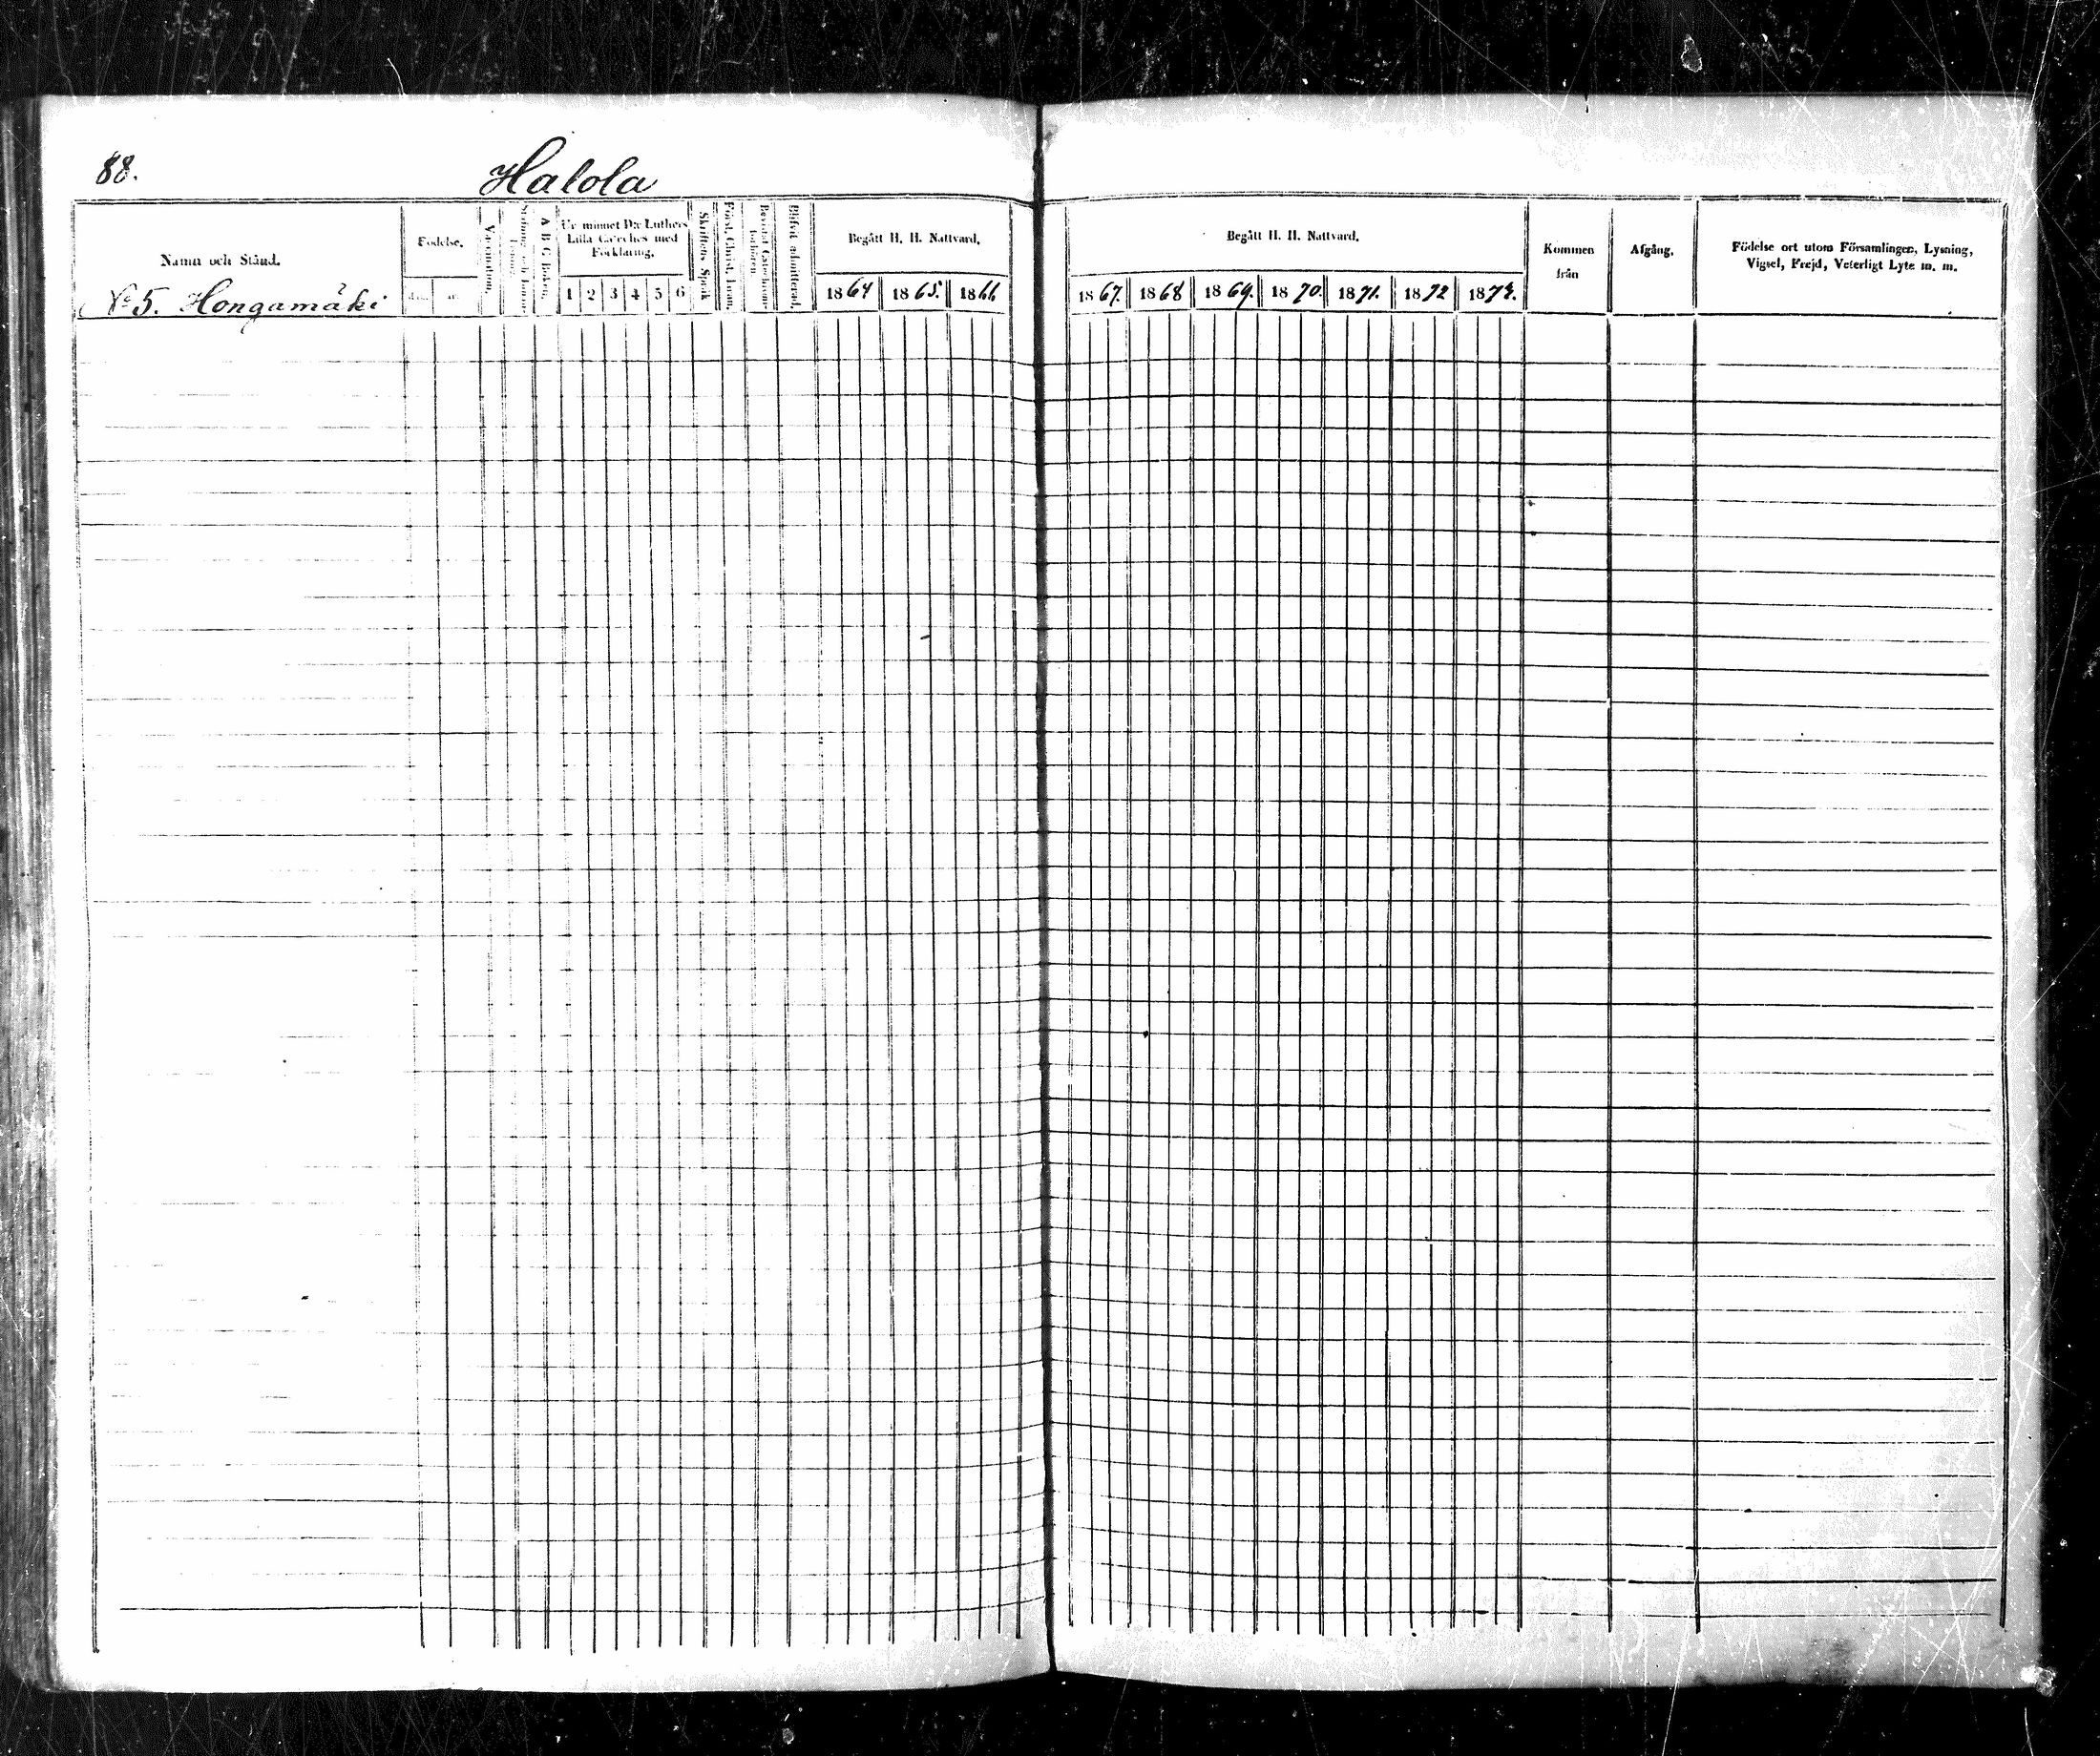 88.
Halola
Namn och Stånd.
Födelse.
A B C Boken.
Ur minnet D:r Luthers
Lilla Cateches med
Förklaring.
Skriftens Språk
Blifvit admitterad.
Begått H. H. Nattvard.
Begått H. H. Nattvard.
Kommen
från
Afgång.
Födelse ort utom Församlingen, Lysning,
Vigsel, Frejd, Veterligt Lyte m. m.
1 2 3 4 5 6
1864 1865. 1866
1867. 1868 1869. 1870. 1871. 1872 1873.
No 5. Hongamäki